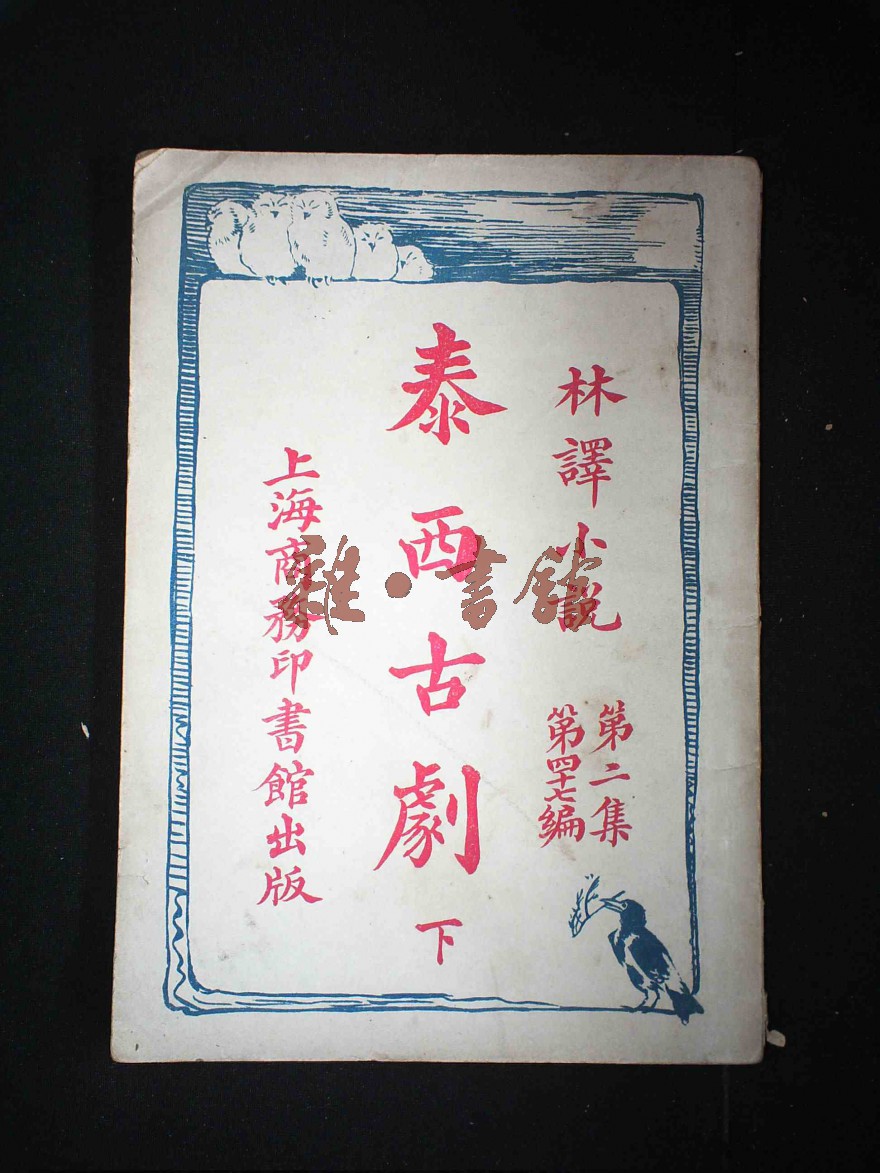 林譯小説
第二集
第四十七編
泰西古劇
下
上海商務印書館出版
雜·書館